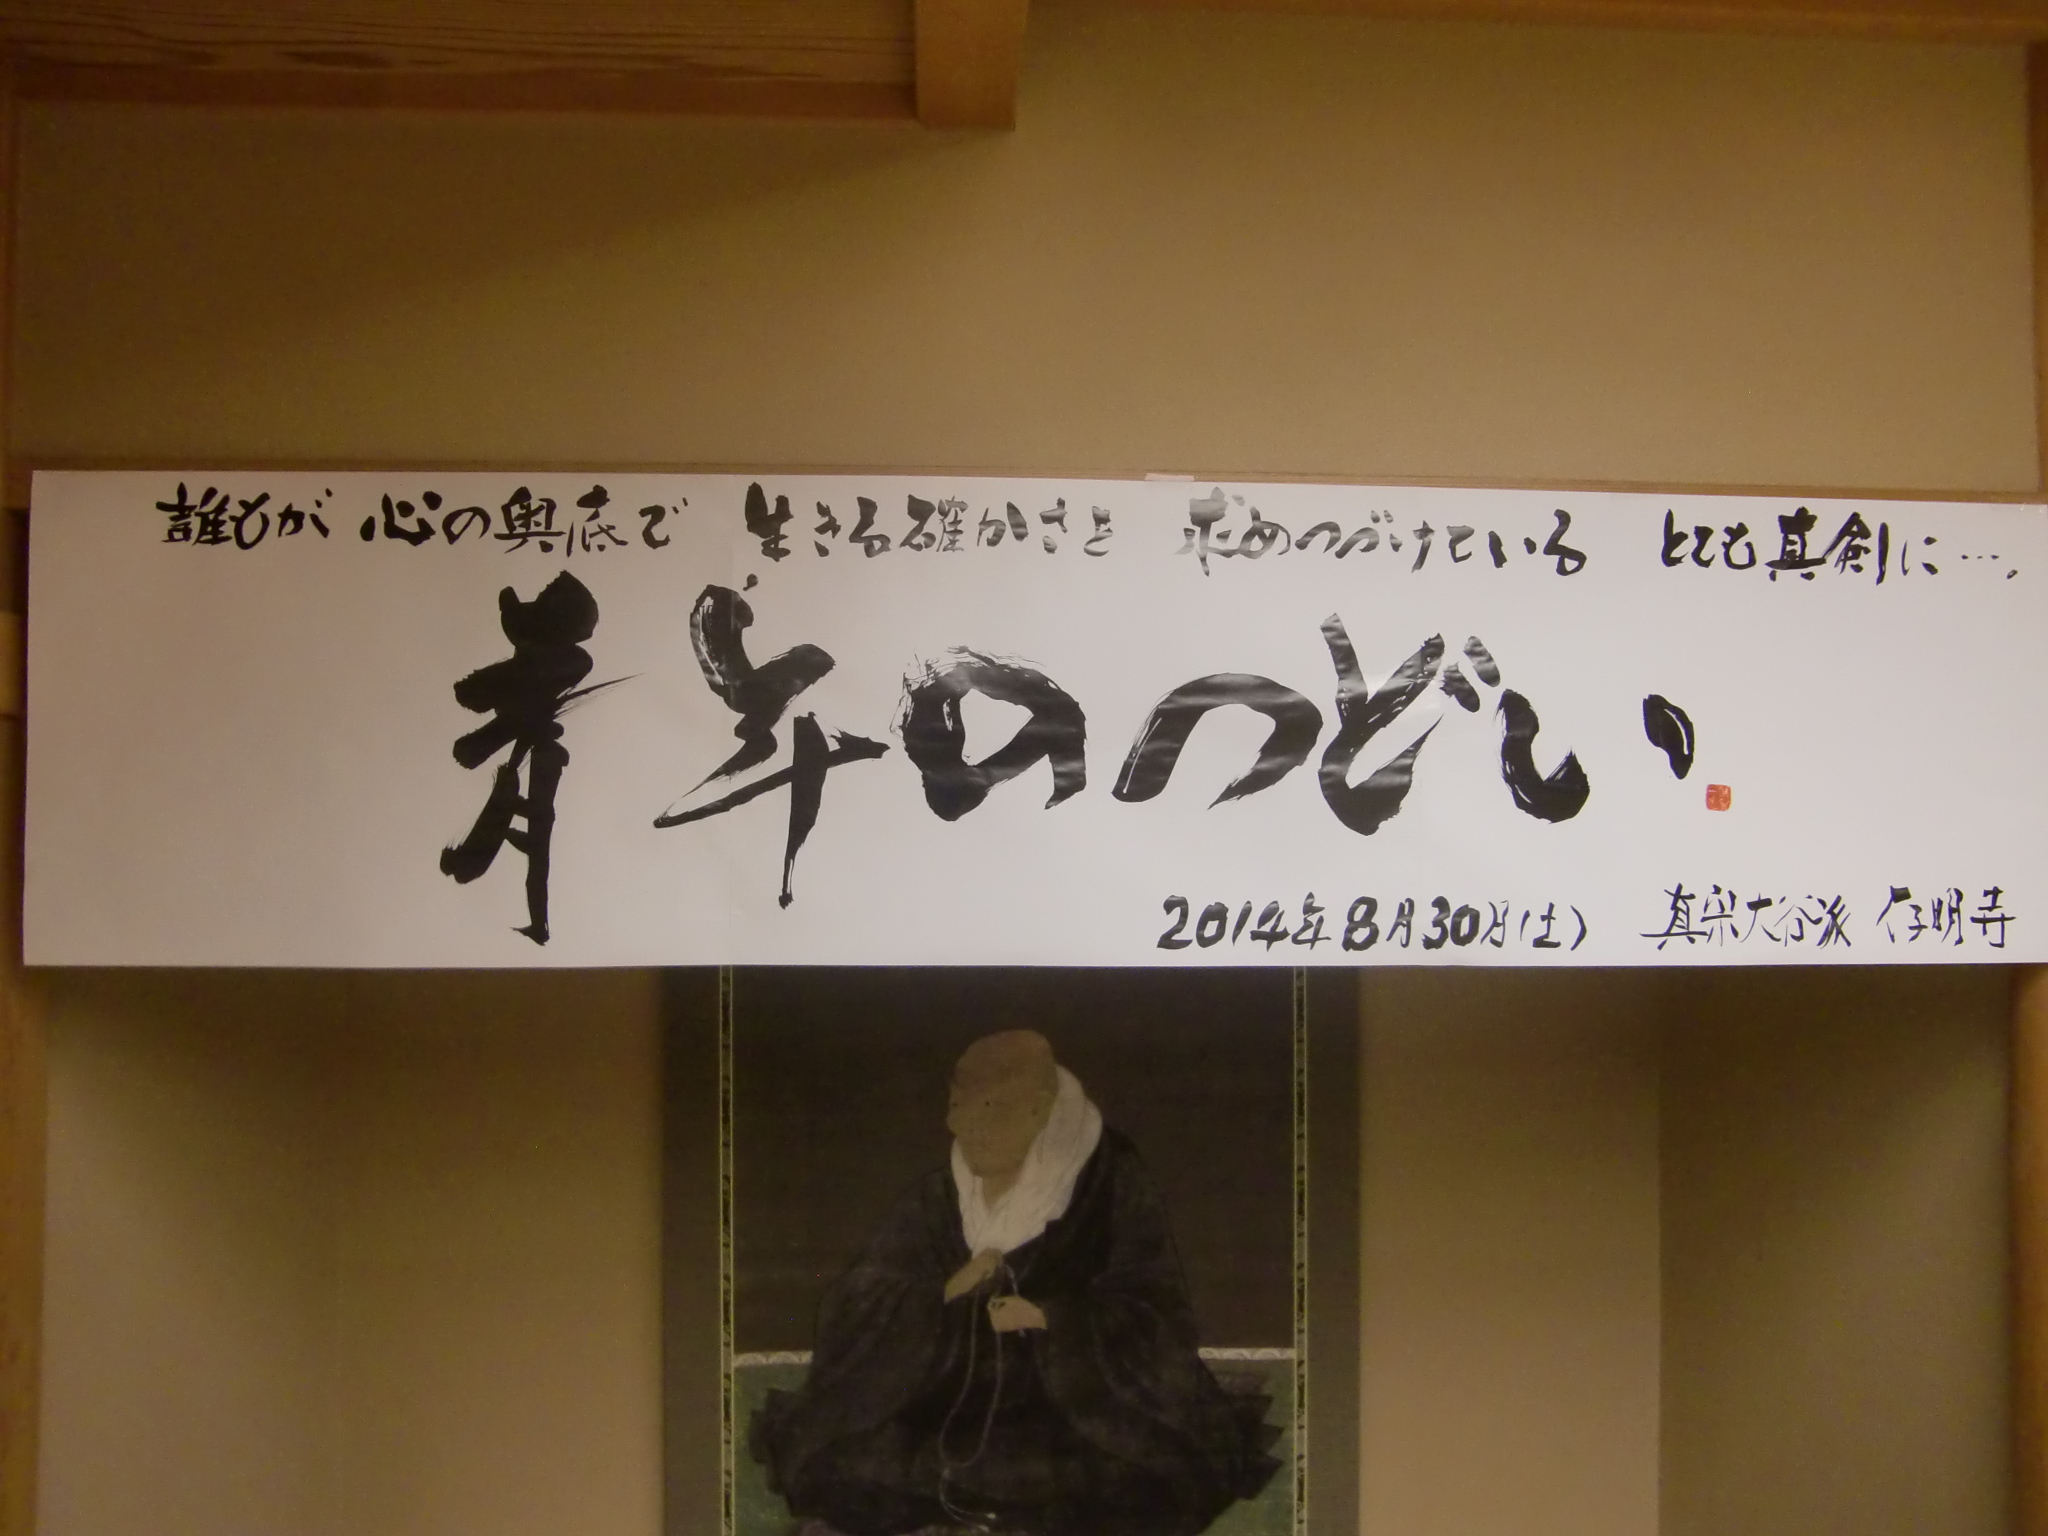 誰もが 心の奥底で 生きる確かさを 求めつづけている とても真剣に…。
青年のつどい
2014年8月30日(土) 真宗大谷派 仔明寺